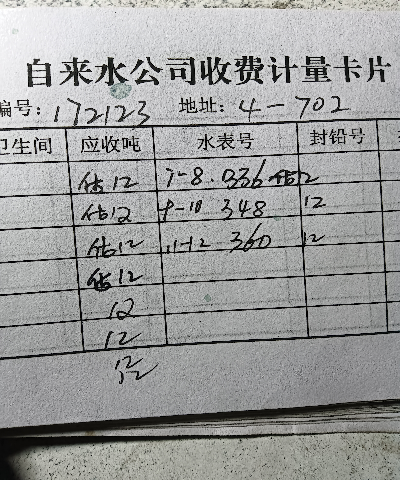 自来水公司收费计量卡片
编号: 172123 地址: 4-702
卫生间 应收吨 水表号 封铅号
估12 7-8. 036 估12
估12 9-10 348 12
估12 11-12 360 12
估12
12
12
12